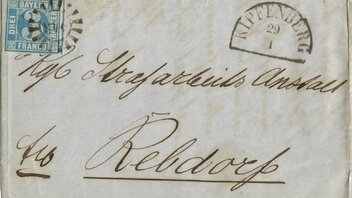 BAYERN
DREI
FRANCO
KIPFENBERG
29
1
Kgl Strafarbeits Anstalt
Rebdorf